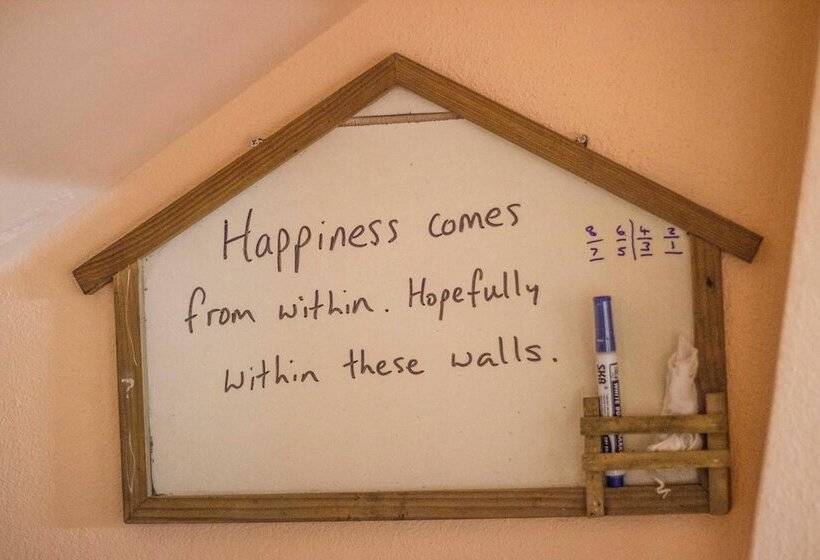 Happiness comes
from within. Hopefully
within these walls.
8 6 | 4 2
7 5 | 3 1
SKA